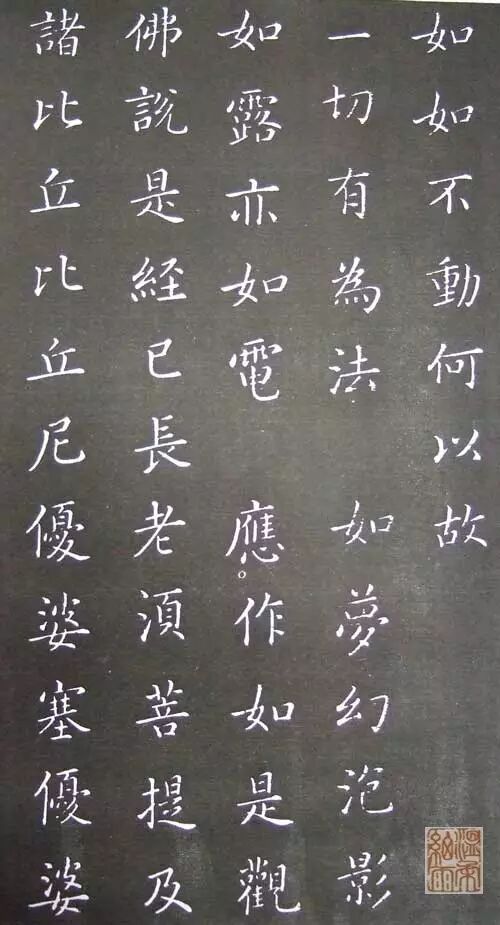 如如不動何以故
一切有為法 如夢幻泡影
如露亦如電 應作如是觀
佛說是經已長老須菩提及
諸比丘比丘尼優婆塞優婆